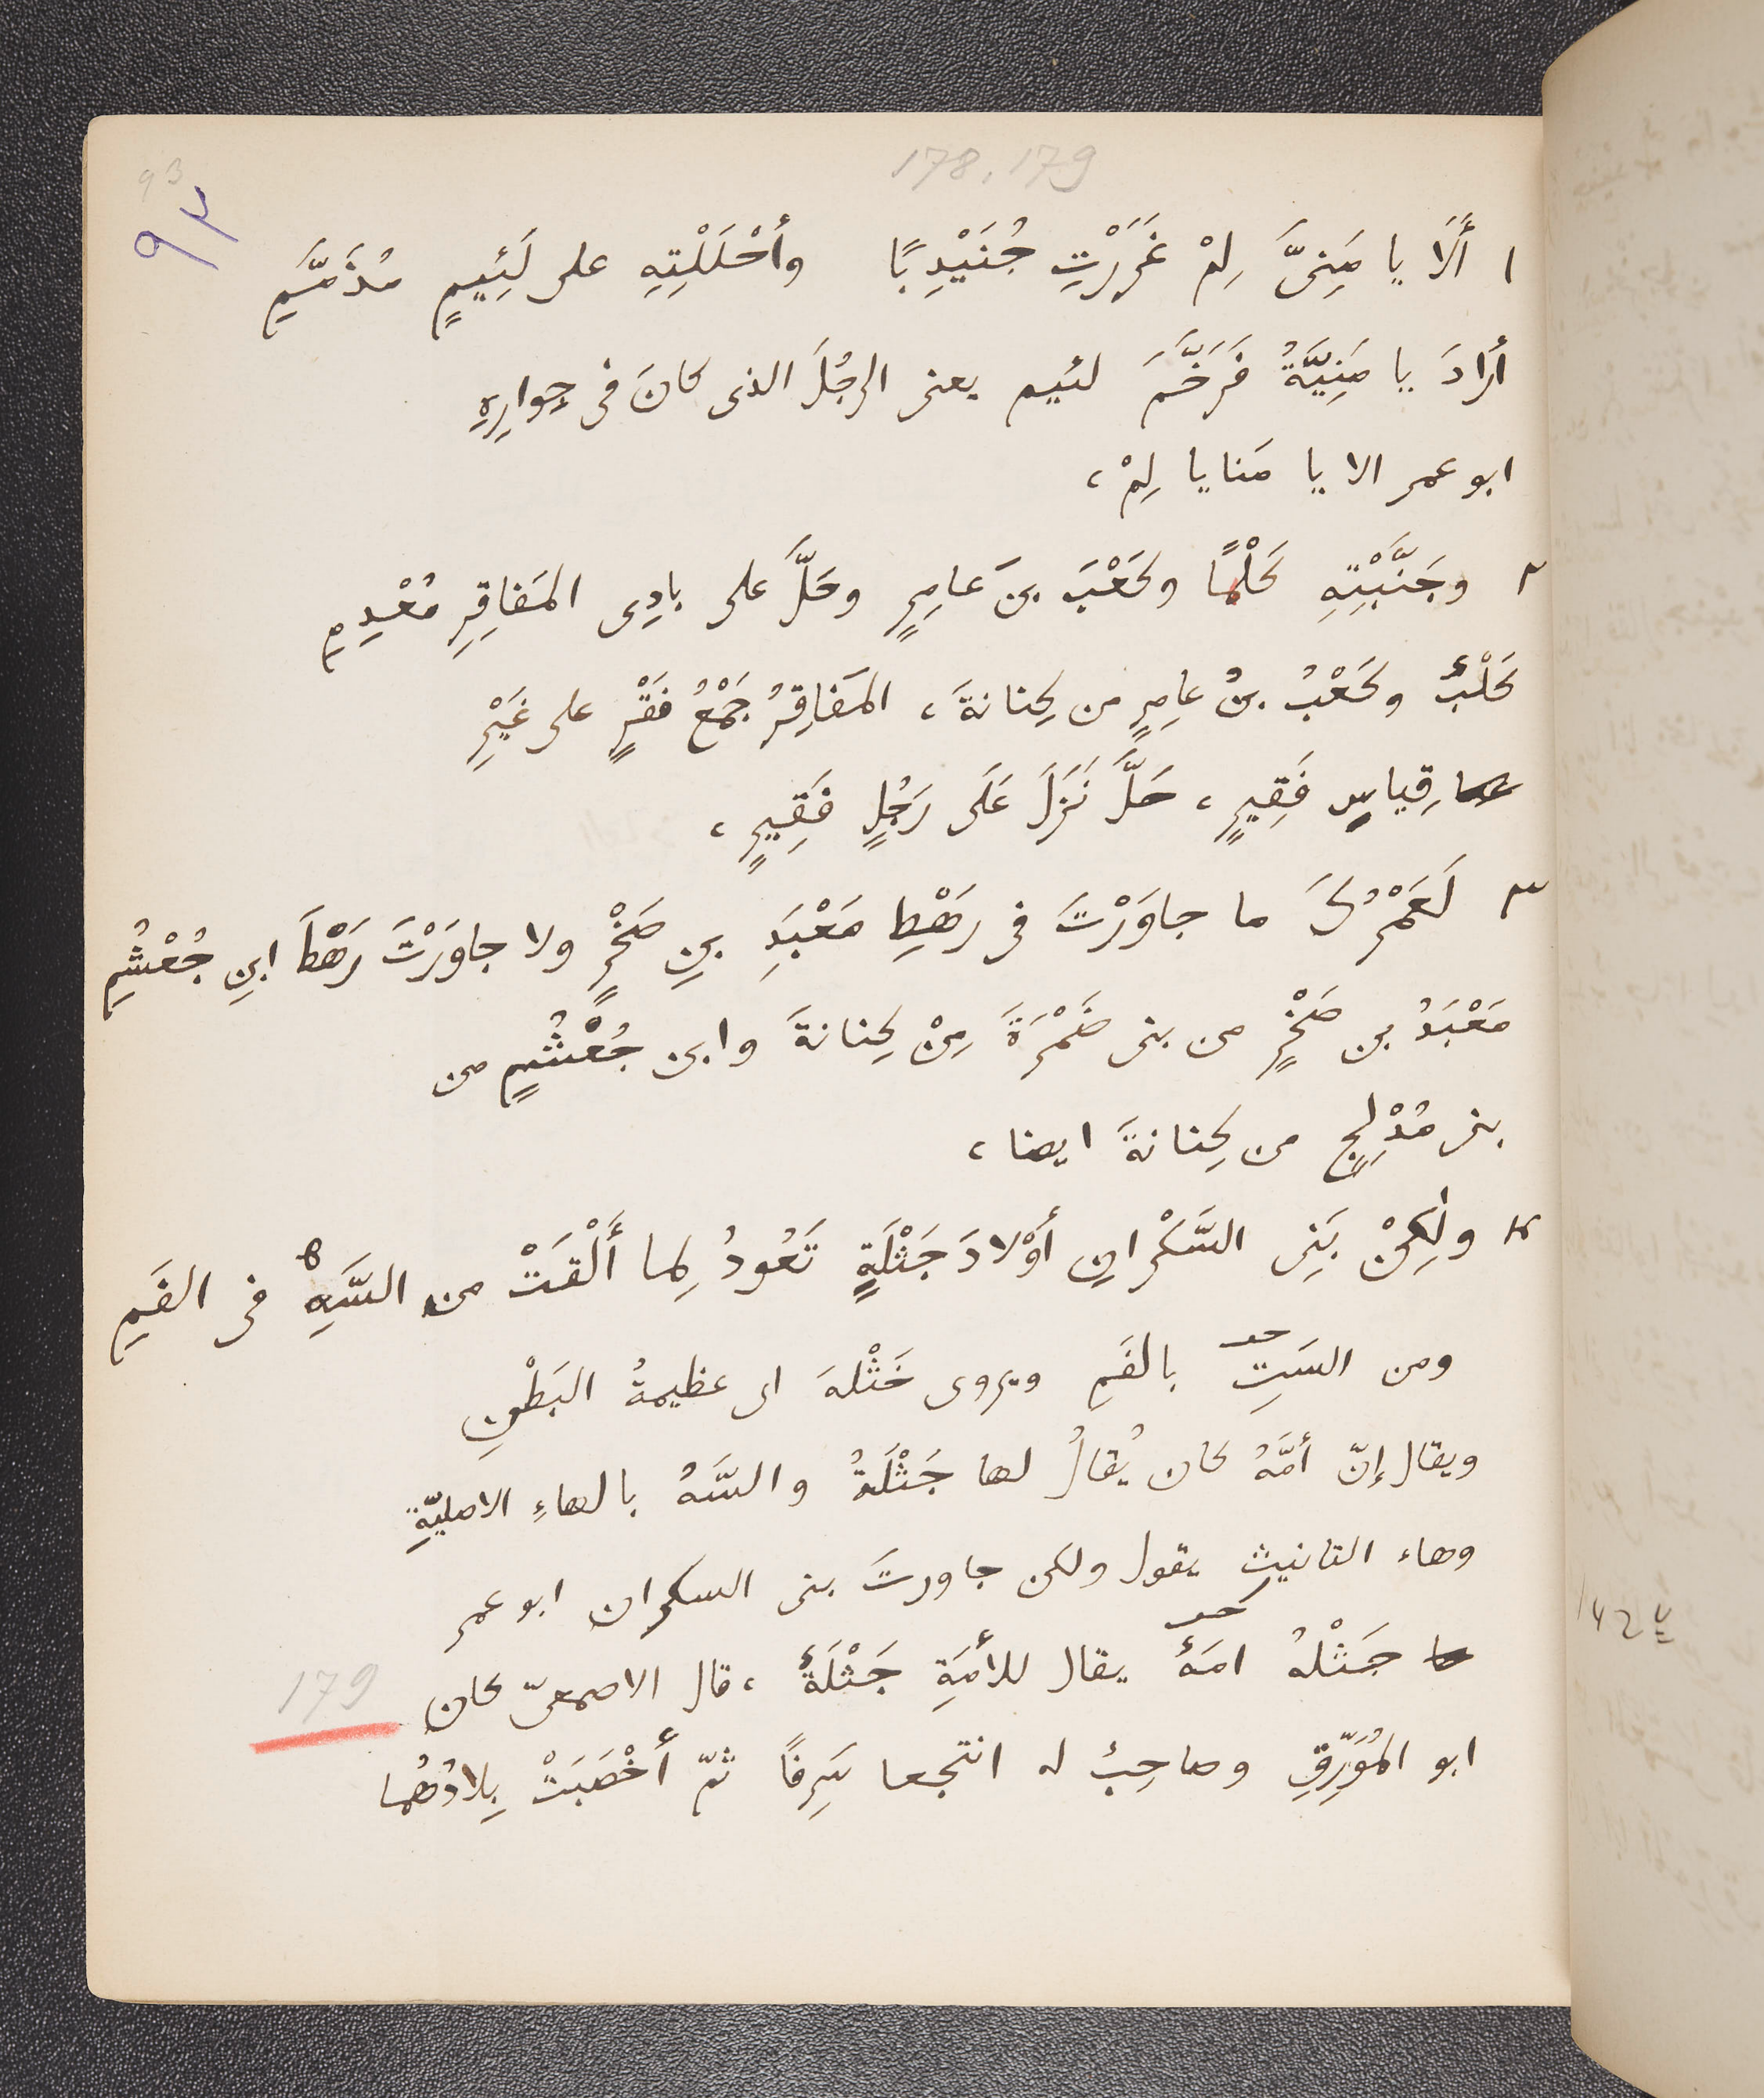 178.179
93
٩٣
١ أَلَا يا مَنِىَّ لِمْ غَرَرْتِ جُنَيْدِبًا وأَحْلَلْتِهِ على لَئِيمٍ مُذَمَّمِ
أرادَ يا مَنِيَّةُ فَرَخَّمَ لئيم يعنى الرجُلَ الذى كانَ فى جِوارِهِ
ابو عمر الا يا مَنايا لِمْ ،
٢ وجَنَّبْتِهِ كَلْبًا وكَعْبَ بنَ عامِرٍ وحَلَّ على بادِى المَفاقِرِ مُعْدِمِ
كَلْبٌ وكَعْبُ بنُ عامِرٍ من كِنانةَ ، المَفاقِرُ جَمْعُ فَقْرٍ على غَيْرِ
قِياسٍ فَقِيرٍ ، حَلَّ نَزَلَ عَلَى رَجُلٍ فَقِيرٍ ،
٣ لَعَمْرُكَ ما جاوَرْتَ فى رَهْطِ مَعْبَدِ بنِ صَخْرٍ ولا جاوَرْتَ رَهْطَ ابنِ جُعْشُمِ
مَعْبَدُ بن صَخْرٍ من بنى ضَمْرَةَ مِنْ كِنانةَ وابن جُعْشُمٍ من
بنى مُدْلِجٍ من كِنانةَ ايضا ،
٤ ولٰكِنْ بَنِى السَّكْرانِ أَوْلادَ جَثْلَةٍ تَعُودُ لِما أَلْقَتْ من السَّهِ فى الفَمِ
ومن السَتِ بالفَمِ ويروى خَثْلهَ اى عظيمةُ البَطْنِ
ويقال إنّ أمَّهُ كان يُقالُ لها جَثْلَةُ والسَّهُ بالهاءِ الاصليّةِ
وهاء التانيث يقول ولكن جاورتَ بنى السكران ابو عمر
جَثْلهُ امَةٌ يقال للأمَةِ جَثْلَةٌ ، قال الاصمعىّ كان
179
ابو المُوَرِّقِ وصاحِبٌ له انتجعا سَرِفًا ثمّ أَخْصَبَتْ بِلادُهُما